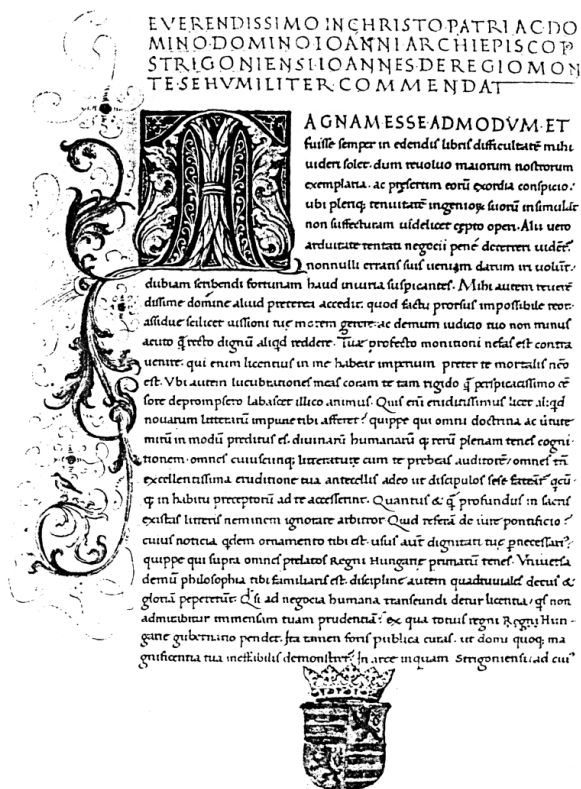 EVERENDISSIMO IN CHRISTO PATRI AC DO
MINO·DOMINO IOANNI ARCHIEPISCOP
STRIGONIENSI·IOANNES·DE REGIOMON
TE·SE HVMILITER COMMENDAT
MAGNAM ESSE·ADMODVM·ET
fuisse semper in edendis libris difficultatē mihi
uideri solet. dum reuoluo maiorum nostrorum
exemplaria. ac presertim eorū exordia conspicio:
ubi pleriq; tenuitatē ingeniorum suorū insimulāt
non suffecturam uidelicet cepto operi. Alii uero
arduitate tentati negocii pene deterreri
nonnulli erratis suis ueniam darum in
dubiam scribendi fortunam haud iniuria suspicantes. Mihi autem
dissime domine aliud preterea accedit. quod factu prorsus impossibile
assidue scilicet iussioni tue morem gerere: ac demum iudicio tuo non minus
acuto dignū aliqd reddere. Tuae profecto monitioni nefas est contra
uenire: qui enim licentius in me habeat imperium preter te mortalis nēo
est. Vbi autem lucubrationes meas coram te tam rigido perspicacissimo
fore deprompsero labascet illico animus. Quis
nouarum litterarū impune tibi afferet? quippe qui omni doctrina ac
mirū in modū preditus es. diuinarū humanarū rerū plenam tenes cogni
tionem. omnes cuiuscunq; litterature cum te prebeas auditorē/ omnes
excellentissima eruditione tua antecellis adeo ut discipulos sese
in habitu preceptorū ad te accesserint. Quantus & profundus in sacris
existas litteris neminem ignorare arbitror Quid referā de iure pontificio?
cuius noticia qdem ornamento tibi est. usus aūt dignitati tue
quippe qui supra omnes prelatos Regni Hungarie primatū tenes. Vniuersa
demū philosophia tibi familiaris est. discipline autem quadruuiales decus &
gloriā pepererūt. ad negocia humana transeundi detur licentia/ qs non
admirabitur immensam tuam prudentiā? ex qua totius regni Regni Hun-
garie gubernatio pendet. Ita tamen foris publica curas. ut domi quoq; ma
gnificentia tua ineffibilis In arce inquam Strigoniensi: ad